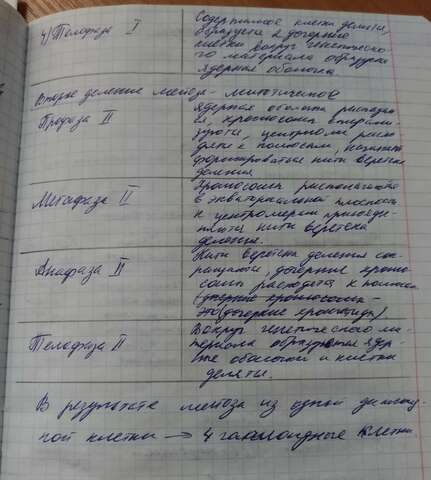 4) Телофаза I
Содержимое клетки делится,
образуется 2 дочерние
клетки вокруг генетическо-
го материала образуется
ядерная оболочка
Второе деление мейоза -
Профаза II
Ядерная оболочка распадает
ся, хромосомы спирали-
зуются, центриоли расхо
дятся к полюсам, начинает
формироваться нити веретена
деления
Метафаза II
Хромосомы располагаются
в экваториальной плоскости
к центромерам присоеди-
няются нити веретена
деления.
Анафаза II
Нити веретена деления сок-
ращаются, дочерние хромо-
сомы расходятся к полюсам
(дочерние хромосомы -
это (дочерние хроматиды)
Телофаза II
Вокруг генетического ма-
териала образуются ядер-
ные оболочки и клетки
делятся.
В результате мейоза из одной диплоид-
ной клетки → 4 гаплоидные клетки.